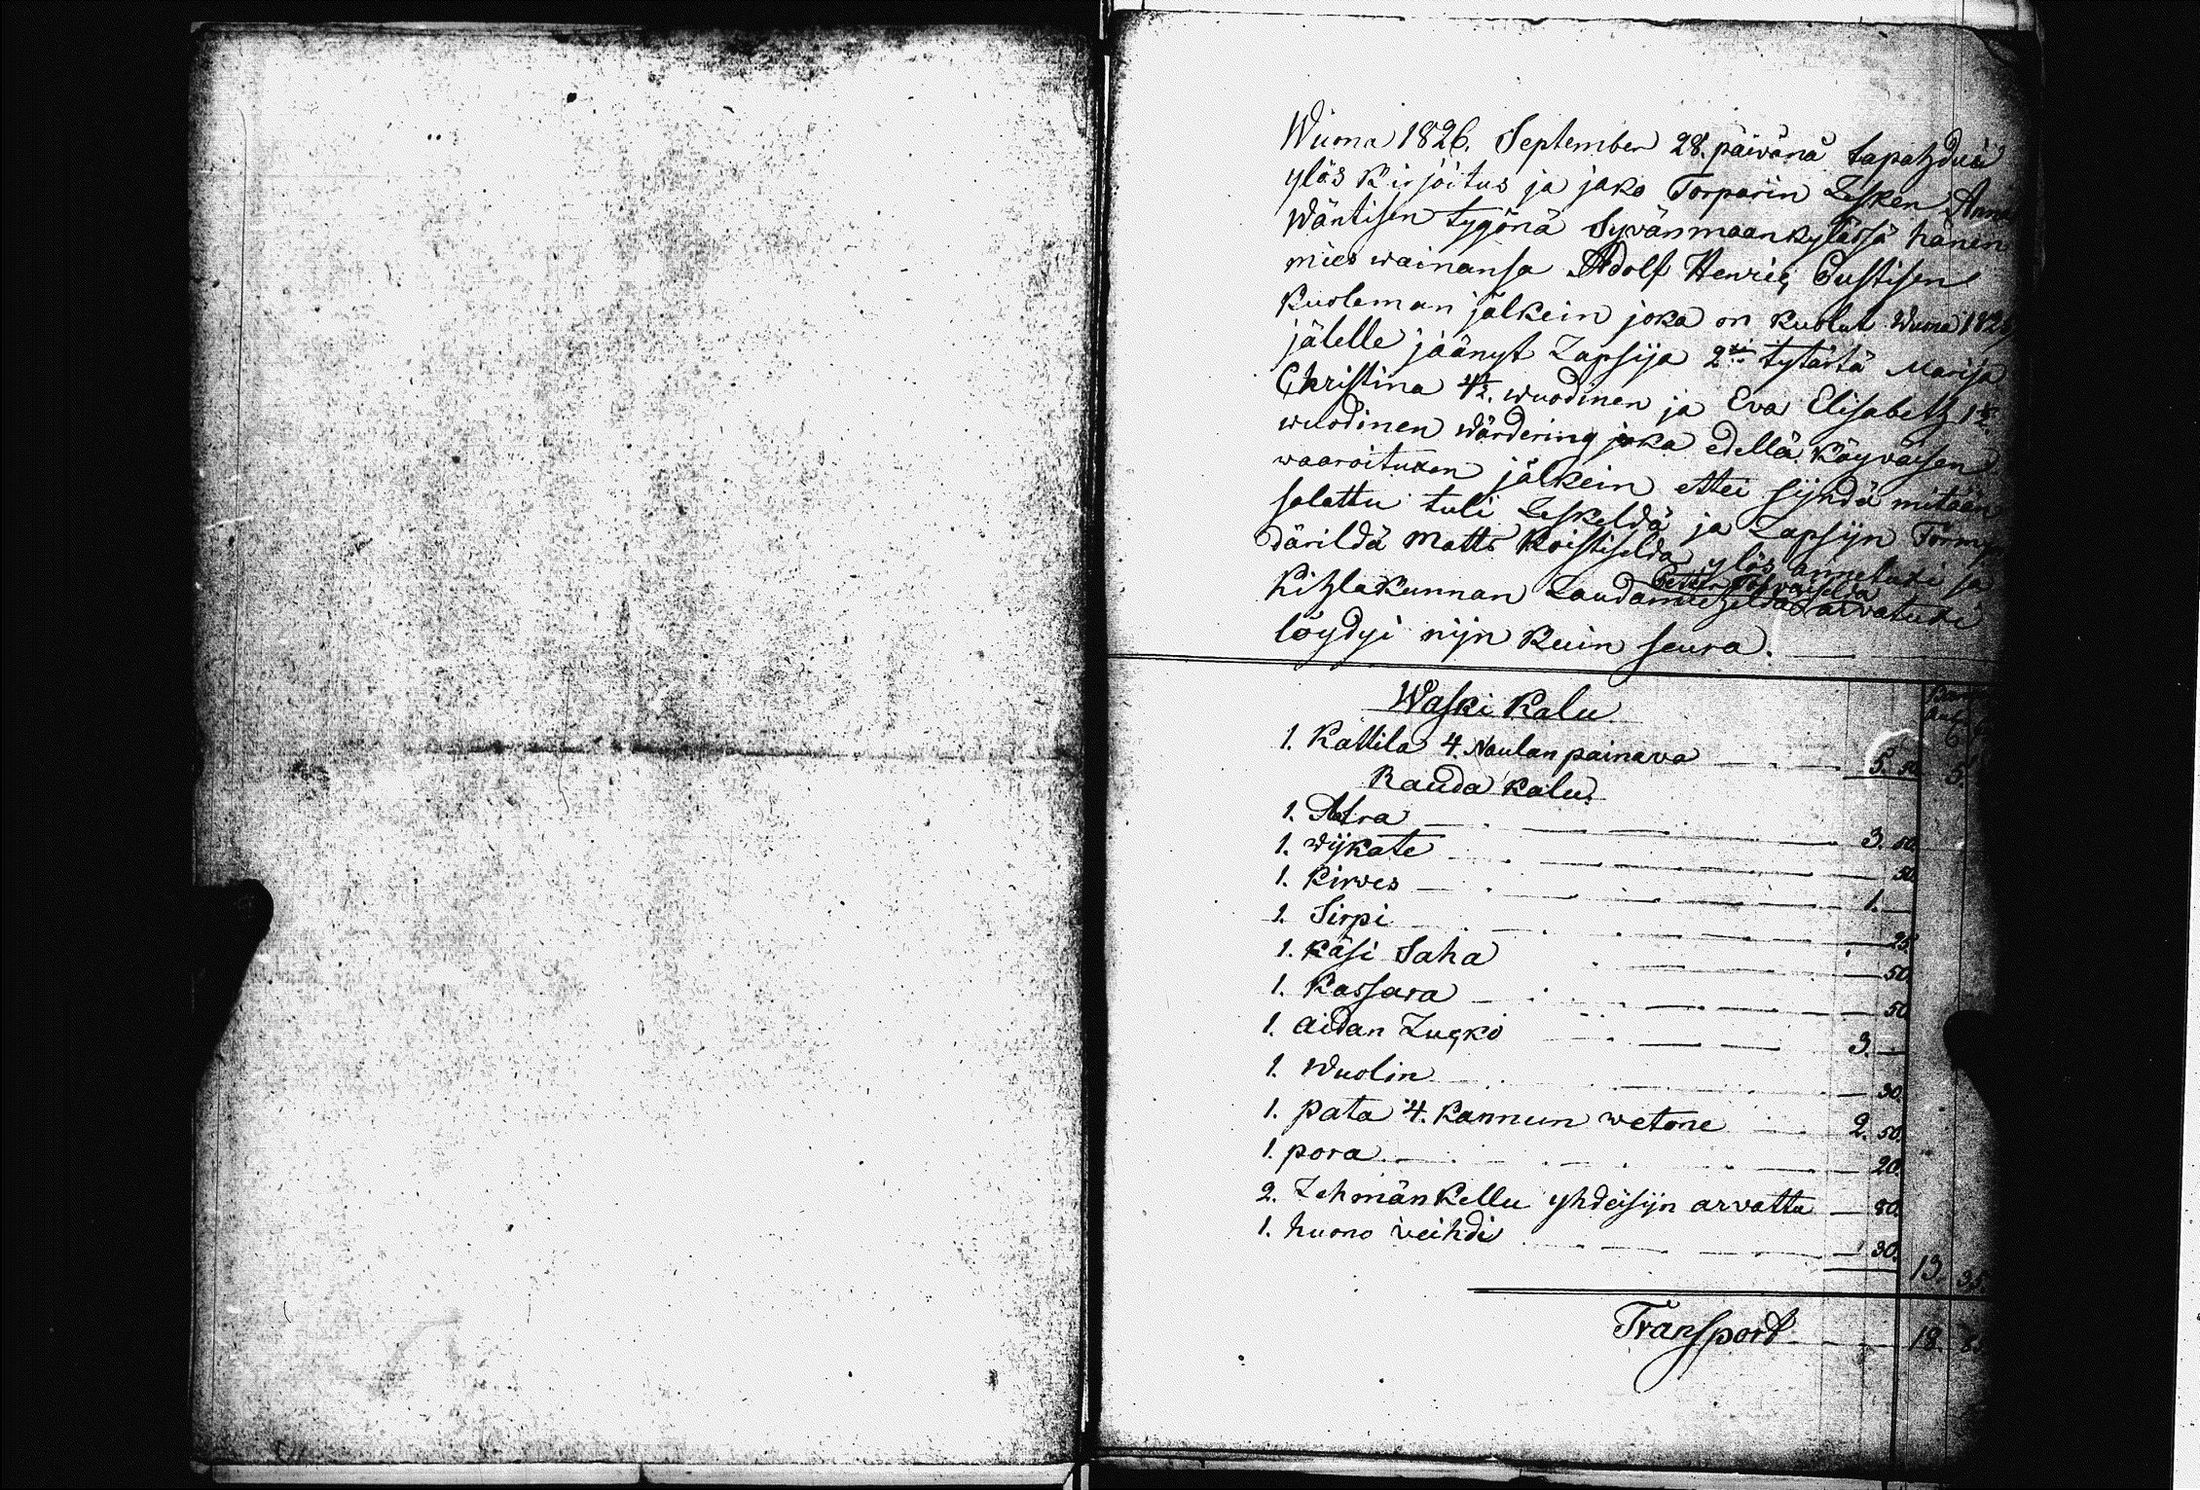 Wuona 1826. September 28. päivänä tapahdui
ylös kirjoitus ja jako Torparin Lesken Anna
Wäntisen tygönä Syvänmaankylässä hänen
mies wainansa Adolf Henric Custisen
kuoleman jälkein joka on kuolut Wuona 182
jälelle jäänyt Lapsija 2xi tytärtä Marija
Christina 4½ wuodinen ja Eva Elisabeth 1½
wuodinen wärdering joka edellä käyväisen
waaroituxen jälkein ettei sijndä mitään
salattu tuli Leskeldä ja Lapsijn Förmyn
därildä Matts Koistiselda ylös annetuxi ja
Kihlakunnan Laudamieheldä Petter arvatuxi
löydyi nijn kuin seura.
Waski kalu
1. Kattila 4. Naulan painava 5. 5.
Rauda kalu.
1. Atra 3. 50.
1. Wijkate 50.
1. Kirves 1.
1. Sirpi 25.
1. Käsi Saha 50.
1. Kassara 50.
1. aidan Lucko 3.
1. Wuolin 30.
1. pata 4. kannun wetone 2. 50.
1. pora 20.
2. Lehmän kellu yhdeisijn arvattu 80.
1. huono veihdi 30. 13. 35.
Transport 18.